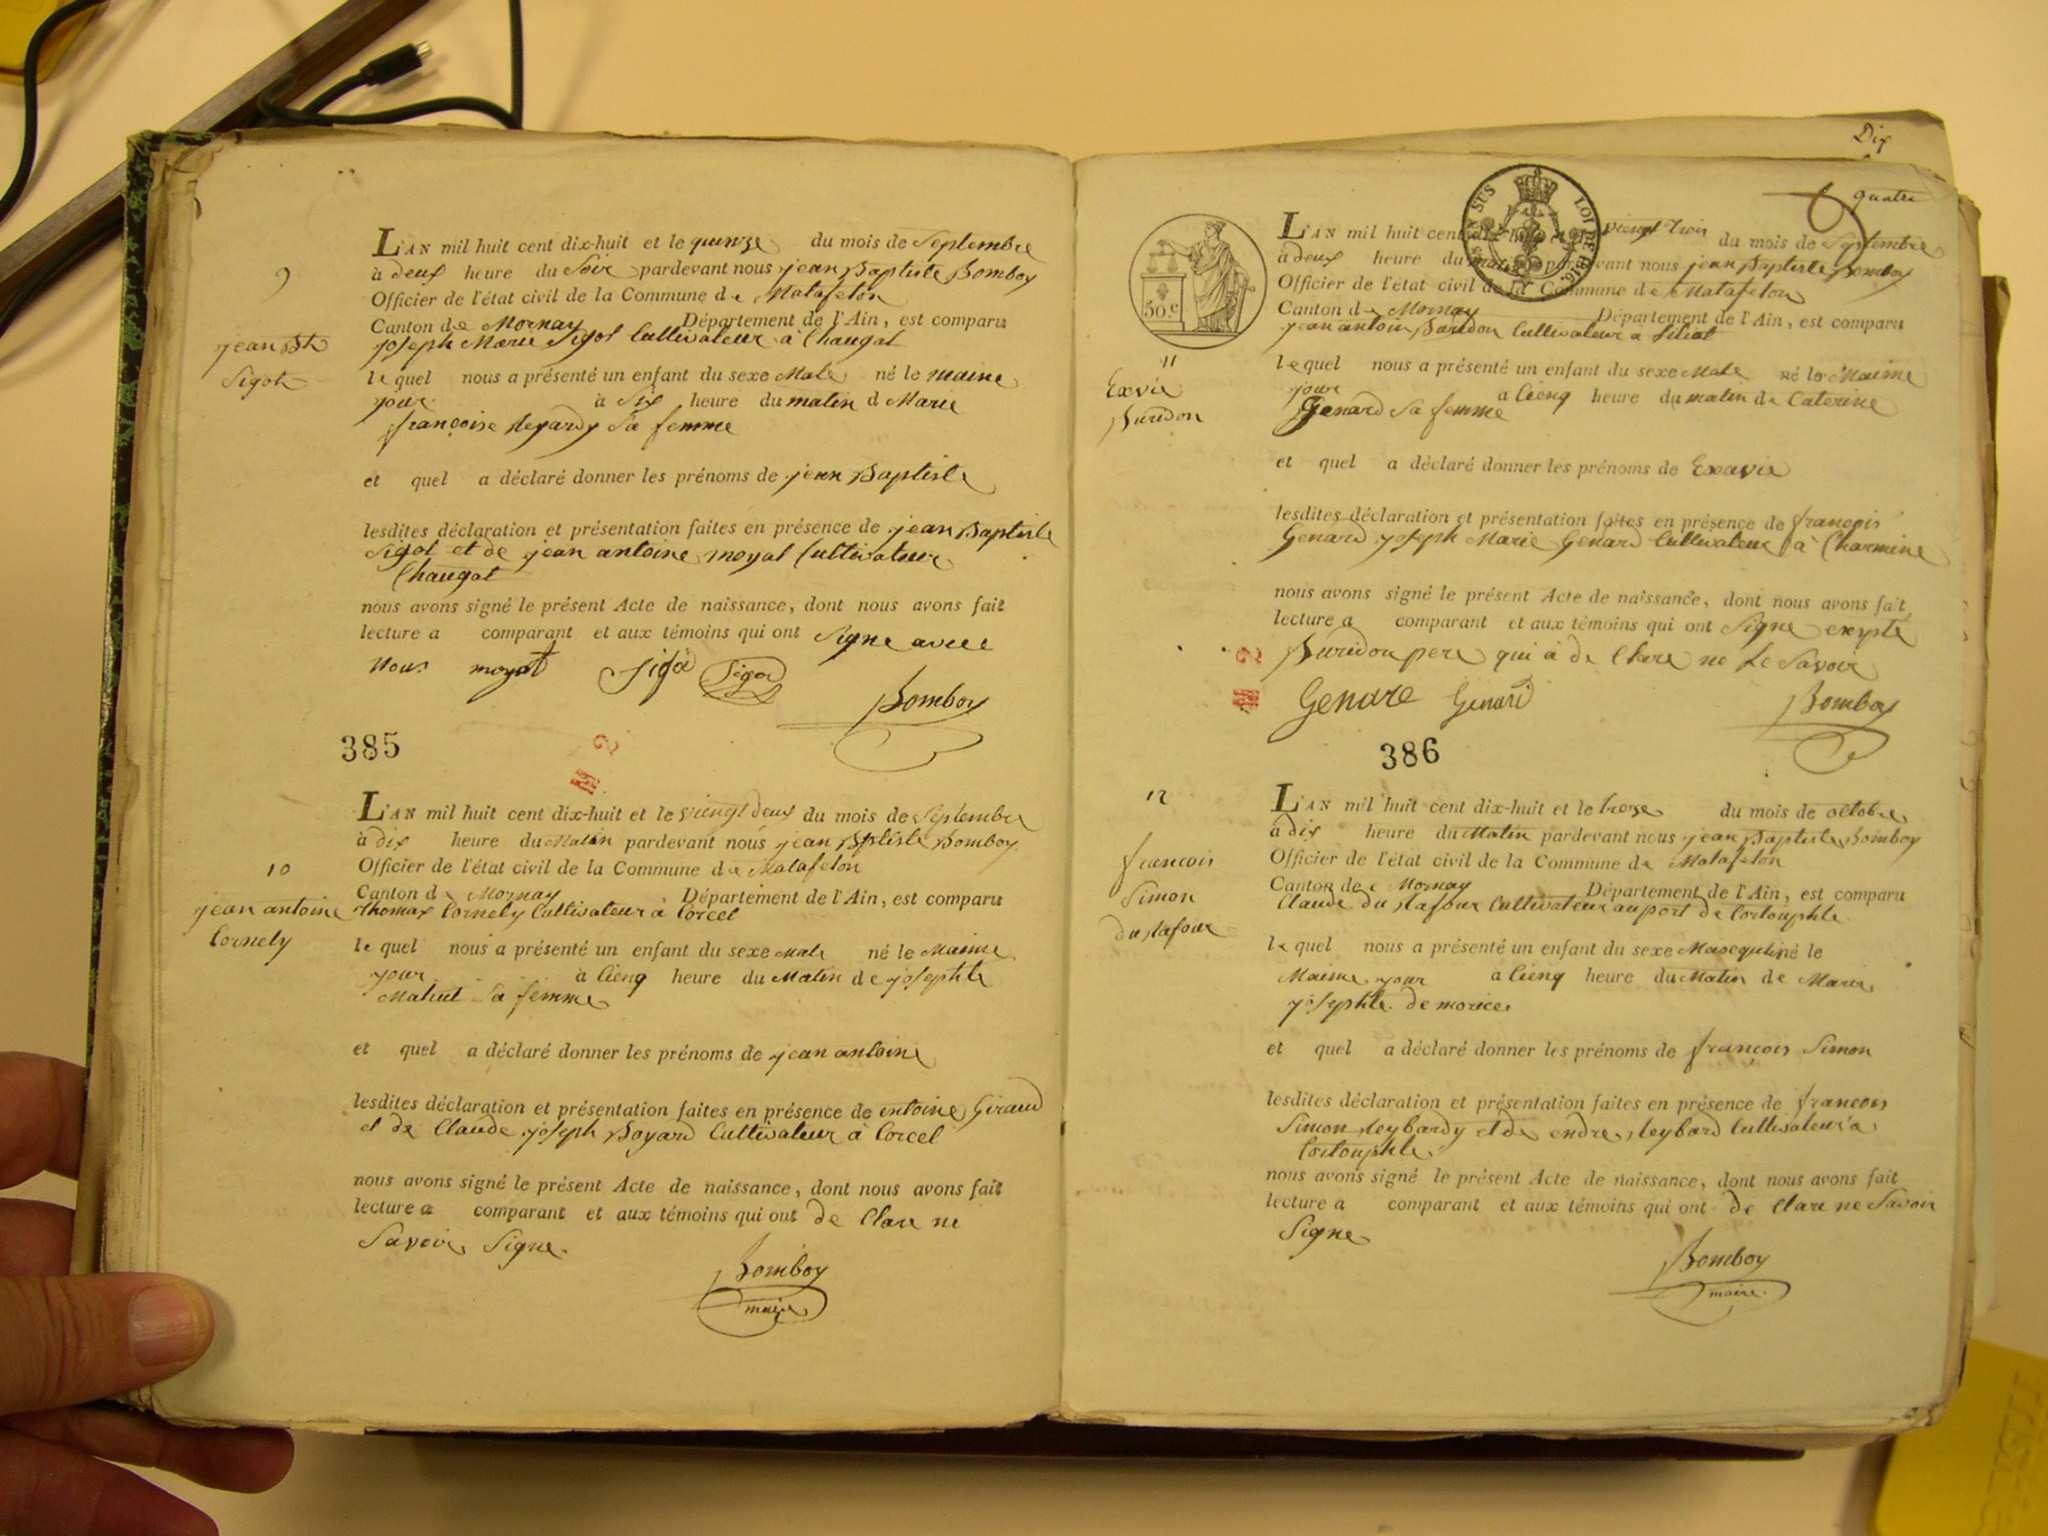 9
jean Bte
Sigot
L'AN mil huit cent dix-huit et le quinze du mois de Septembre
à deux heure du Soir pardevant nous jean Baptiste Bomboy
Officier de l'état civil de la Commune de Matafelon
Canton de Mornay Département de l'Ain, est comparu
joseph Marie Sigot Cultivateur à Chaugat
lequel nous a présenté un enfant du sexe Male né le maime
jour à Six heure du matin d Marie
françoise Reyardy Sa femme
et quel a déclaré donner les prénoms de jean Baptiste
lesdites déclaration et présentation faites en présence de jean Baptiste
Sigot et de jean antoine moyat Cultivateur
Chaugat
nous avons signé le présent Acte de naissance, dont nous avons fait
lecture a comparant et aux témoins qui ont Signe avec
Nous moyat Sigot Sigot
Bomboy
385
10
jean antoine
Cornely
L'AN mil huit cent dix-huit et le viengt deux du mois de Septembre
à dix heure du Matin pardevant nous jean Bptiste Bomboy
Officier de l'état civil de la Commune de Matafelon
Canton de Mornay Département de l'Ain, est comparu
thomax Cornely Cultivateur à Corcel
le quel nous a présenté un enfant du sexe Male né le Maime
jour à Cienq heure du Matin de josephte
Mahut Sa femme
et quel a déclaré donner les prénoms de jean antoine
lesdites déclaration et présentation faites en présence de entoine Giraud
et de Claude joseph Boyard Cultivateur à Corcel
nous avons signé le présent Acte de naissance, dont nous avons fait
lecture a comparant et aux témoins qui ont de Clare ne
Savoir Signe
Bomboy
maire
Dix
quatre
50.c
SUS LOI DE 1816
11
Exavie
Buridon
L'AN mil huit cent dix-huit et le viengt trois du mois de Septembre
à deux heure du matin pardevant nous jean Baptiste Bomboy
Officier de l'état civil de la Commune de Matafelon
Canton de Mornay Département de l'Ain, est comparu
jean antoin Buridon Cultivateur à Siliat
lequel nous a présenté un enfant du sexe Male né le Maime
jour a Cienq heure du matin de Caterine
Genard Sa femme
et quel a déclaré donner les prénoms de Exavie
lesdites déclaration et présentation faites en présence de françois
Genard joseph Marie Genard Cultivateur à Charmine
nous avons signé le présent Acte de naissance, dont nous avons fait
lecture a comparant et aux témoins qui ont Signe exypte
Buridon pere qui à de Clare ne le Savoir
Genare Genard
Bomboy
386
12
francois
Simon
du Lafour
L'AN mil huit cent dix-huit et le treze du mois de octobre
à dix heure du Matin pardevant nous jean Baptiste Bomboy
Officier de l'état civil de la Commune de Matafelon
Canton de Mornay Département de l'Ain, est comparu
Claude du Lafour Cultivateur au port de Cortouphle
le quel nous a présenté un enfant du sexe Masequlin né le
Maime jour a Cienq heure du Matin de Marie
josephte de morice
et quel a déclaré donner les prénoms de françois Simon
lesdites déclaration et présentation faites en présence de francois
Simon Leybardy et de endre Leybard Cultivateur a
Cortouphle
nous avons signé le présent Acte de naissance, dont nous avons fait
lecture a comparant et aux témoins qui ont de Clare ne Savoir
Signe
Bomboy
maire